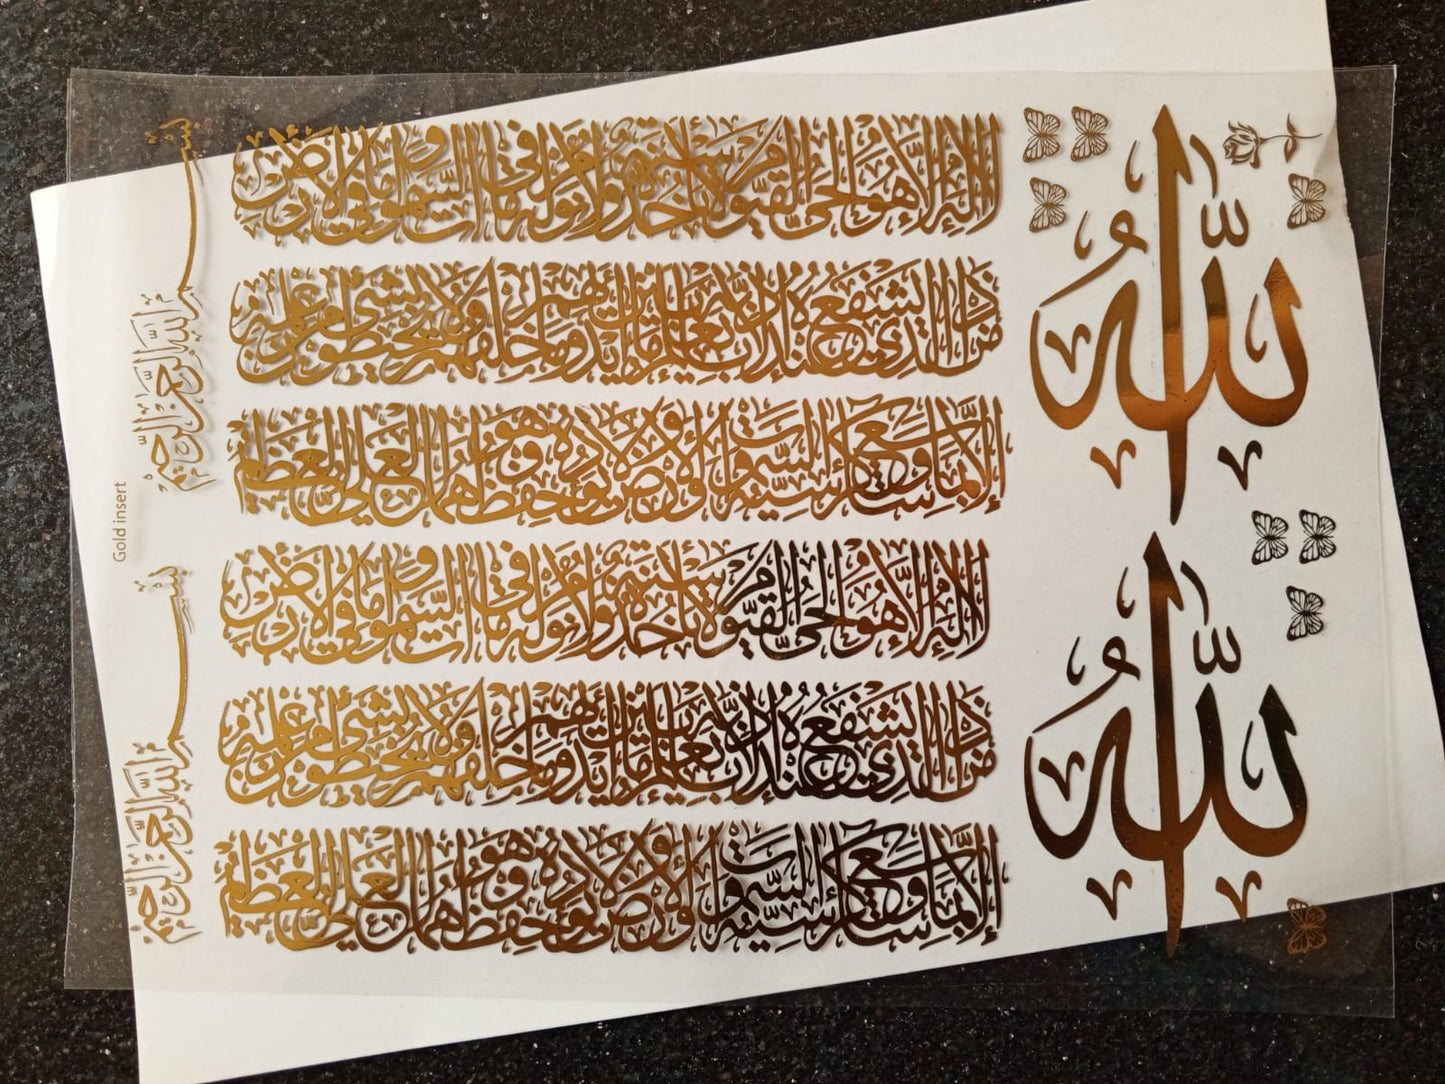 بسم الله الرحمن الرحيم
الله لا إله إلا هو الحي القيوم لا تأخذه سنة ولا نوم له ما في السموات وما في الأرض
من ذا الذي يشفع عنده إلا بإذنه يعلم ما بين أيديهم وما خلفهم ولا يحيطون بشيء من علمه
إلا بما شاء وسع كرسيه السموات والأرض ولا يؤده حفظهما وهو العلي العظيم
الله
Gold insert
بسم الله الرحمن الرحيم
الله لا إله إلا هو الحي القيوم لا تأخذه سنة ولا نوم له ما في السموات وما في الأرض
من ذا الذي يشفع عنده إلا بإذنه يعلم ما بين أيديهم وما خلفهم ولا يحيطون بشيء من علمه
إلا بما شاء وسع كرسيه السموات والأرض ولا يؤده حفظهما وهو العلي العظيم
الله